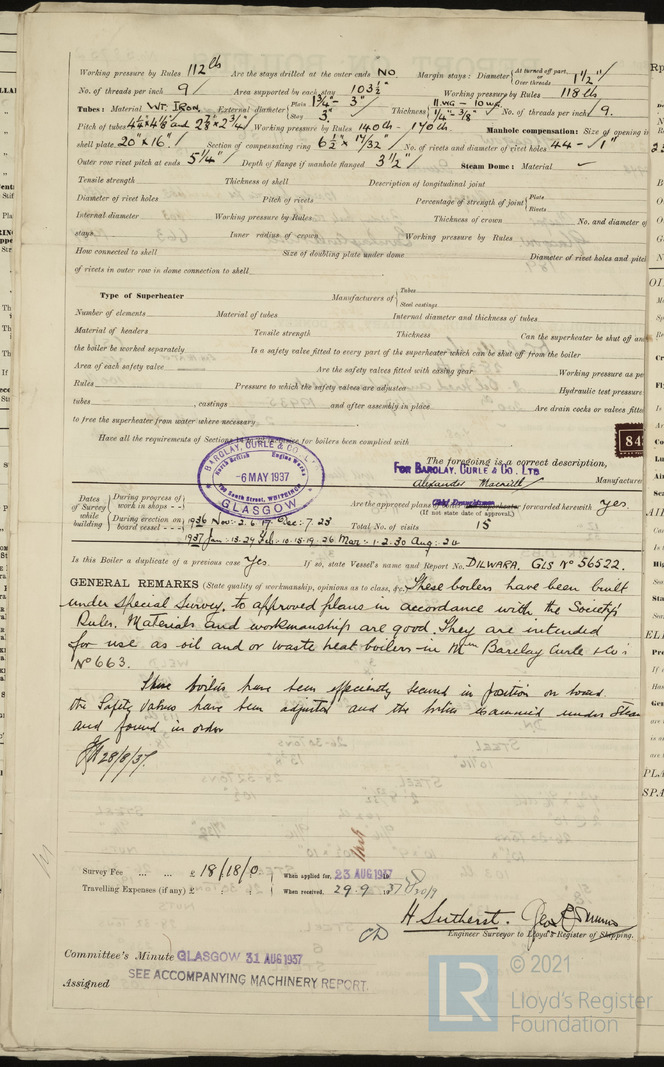 Working pressure by Rules 112 lb Are the stays drilled at the outer ends NO Margin stays: Diameter { At turned off part, or Over threads 1 1/2"
No. of threads per inch 9 Area supported by each stay 103 1/2" Working pressure by Rules 118 lb
Tubes: Material WT. IRON. External diameter { Plain 1 3/4" - 3" Stay 3" Thickness { 11 WG - 10 WG 1/4" - 3/8" No. of threads per inch 9.
Pitch of tubes 4 1/4" x 4 1/8" and 2 7/8" x 2 3/4" Working pressure by Rules 140 lb - 170 lb Manhole compensation: Size of opening in
shell plate 20" x 16" Section of compensating ring No. of rivets and diameter of rivet holes 44 - 1"
Outer row rivet pitch at ends 5 1/4" Depth of flange if manhole flanged 3 1/2" Steam Dome: Material
Tensile strength Thickness of shell Description of longitudinal joint
Diameter of rivet holes Pitch of rivets Percentage of strength of joint { Plate Rivets
Internal diameter Working pressure by Rules Thickness of crown No. and diameter of
stays Inner radius of crown Working pressure by Rules
How connected to shell Size of doubling plate under dome Diameter of rivet holes and pitch
of rivets in outer row in dome connection to shell
Type of Superheater Manufacturers of { Tubes Steel castings
Number of elements Material of tubes Internal diameter and thickness of tubes
Material of headers Tensile strength Thickness Can the superheater be shut off and
the boiler be worked separately Is a safety valve fitted to every part of the superheater which can be shut off from the boiler
Area of each safety valve Are the safety valves fitted with easing gear Working pressure as per
Rules Pressure to which the safety valves are adjusted Hydraulic test pressure
tubes , castings and after assembly in place Are drain cocks or valves fitted
to free the superheater from water where necessary
Have all the requirements of Sections for boilers been complied with
84
The foregoing is a correct description,
FOR BARCLAY, CURLE & CO. LTD
Manufacturer
BARCLAY, CURLE & CO. LTD
North British Engine Works
-6 MAY 1937
739 South Street, WHITEINCH
GLASGOW
Dates of Survey while building { During progress of work in shops - - Are the approved plans of forwarded herewith Yes.
(If not state date of approval.)
During erection on board vessel - - - 1936 Nov: 2. 6. 17. Dec: 7. 23 Total No. of visits 15
1937 Jan: 13. 24 Feb: 10. 15. 19. 26 Mar: 1. 2. 30 Aug: 24
Is this Boiler a duplicate of a previous case Yes. If so, state Vessel's name and Report No. DILWARA. GLS No 56522.
GENERAL REMARKS (State quality of workmanship, opinions as to class, &c. These boilers have been built
under Special Survey, to approved plans in accordance with the Society's
Rules. Materials and workmanship are good. They are intended
for use as oil and or waste heat boilers in Barclay Curle & Co's
No 663.
These boilers have been efficiently secured in position on board
the Safety Valves have been adjusted and the boilers examined under Steam
and found in order
28/8/37.
Survey Fee ... ... £ 18/18/0 When applied for, 23 AUG 1937
Travelling Expenses (if any) £ : : When received, 29. 9. 1937 20/9
H Sutherst.
Engineer Surveyor to Lloyd's Register of Shipping.
Committee's Minute GLASGOW 31 AUG 1937
Assigned SEE ACCOMPANYING MACHINERY REPORT.
LR © 2021
Lloyd's Register
Foundation